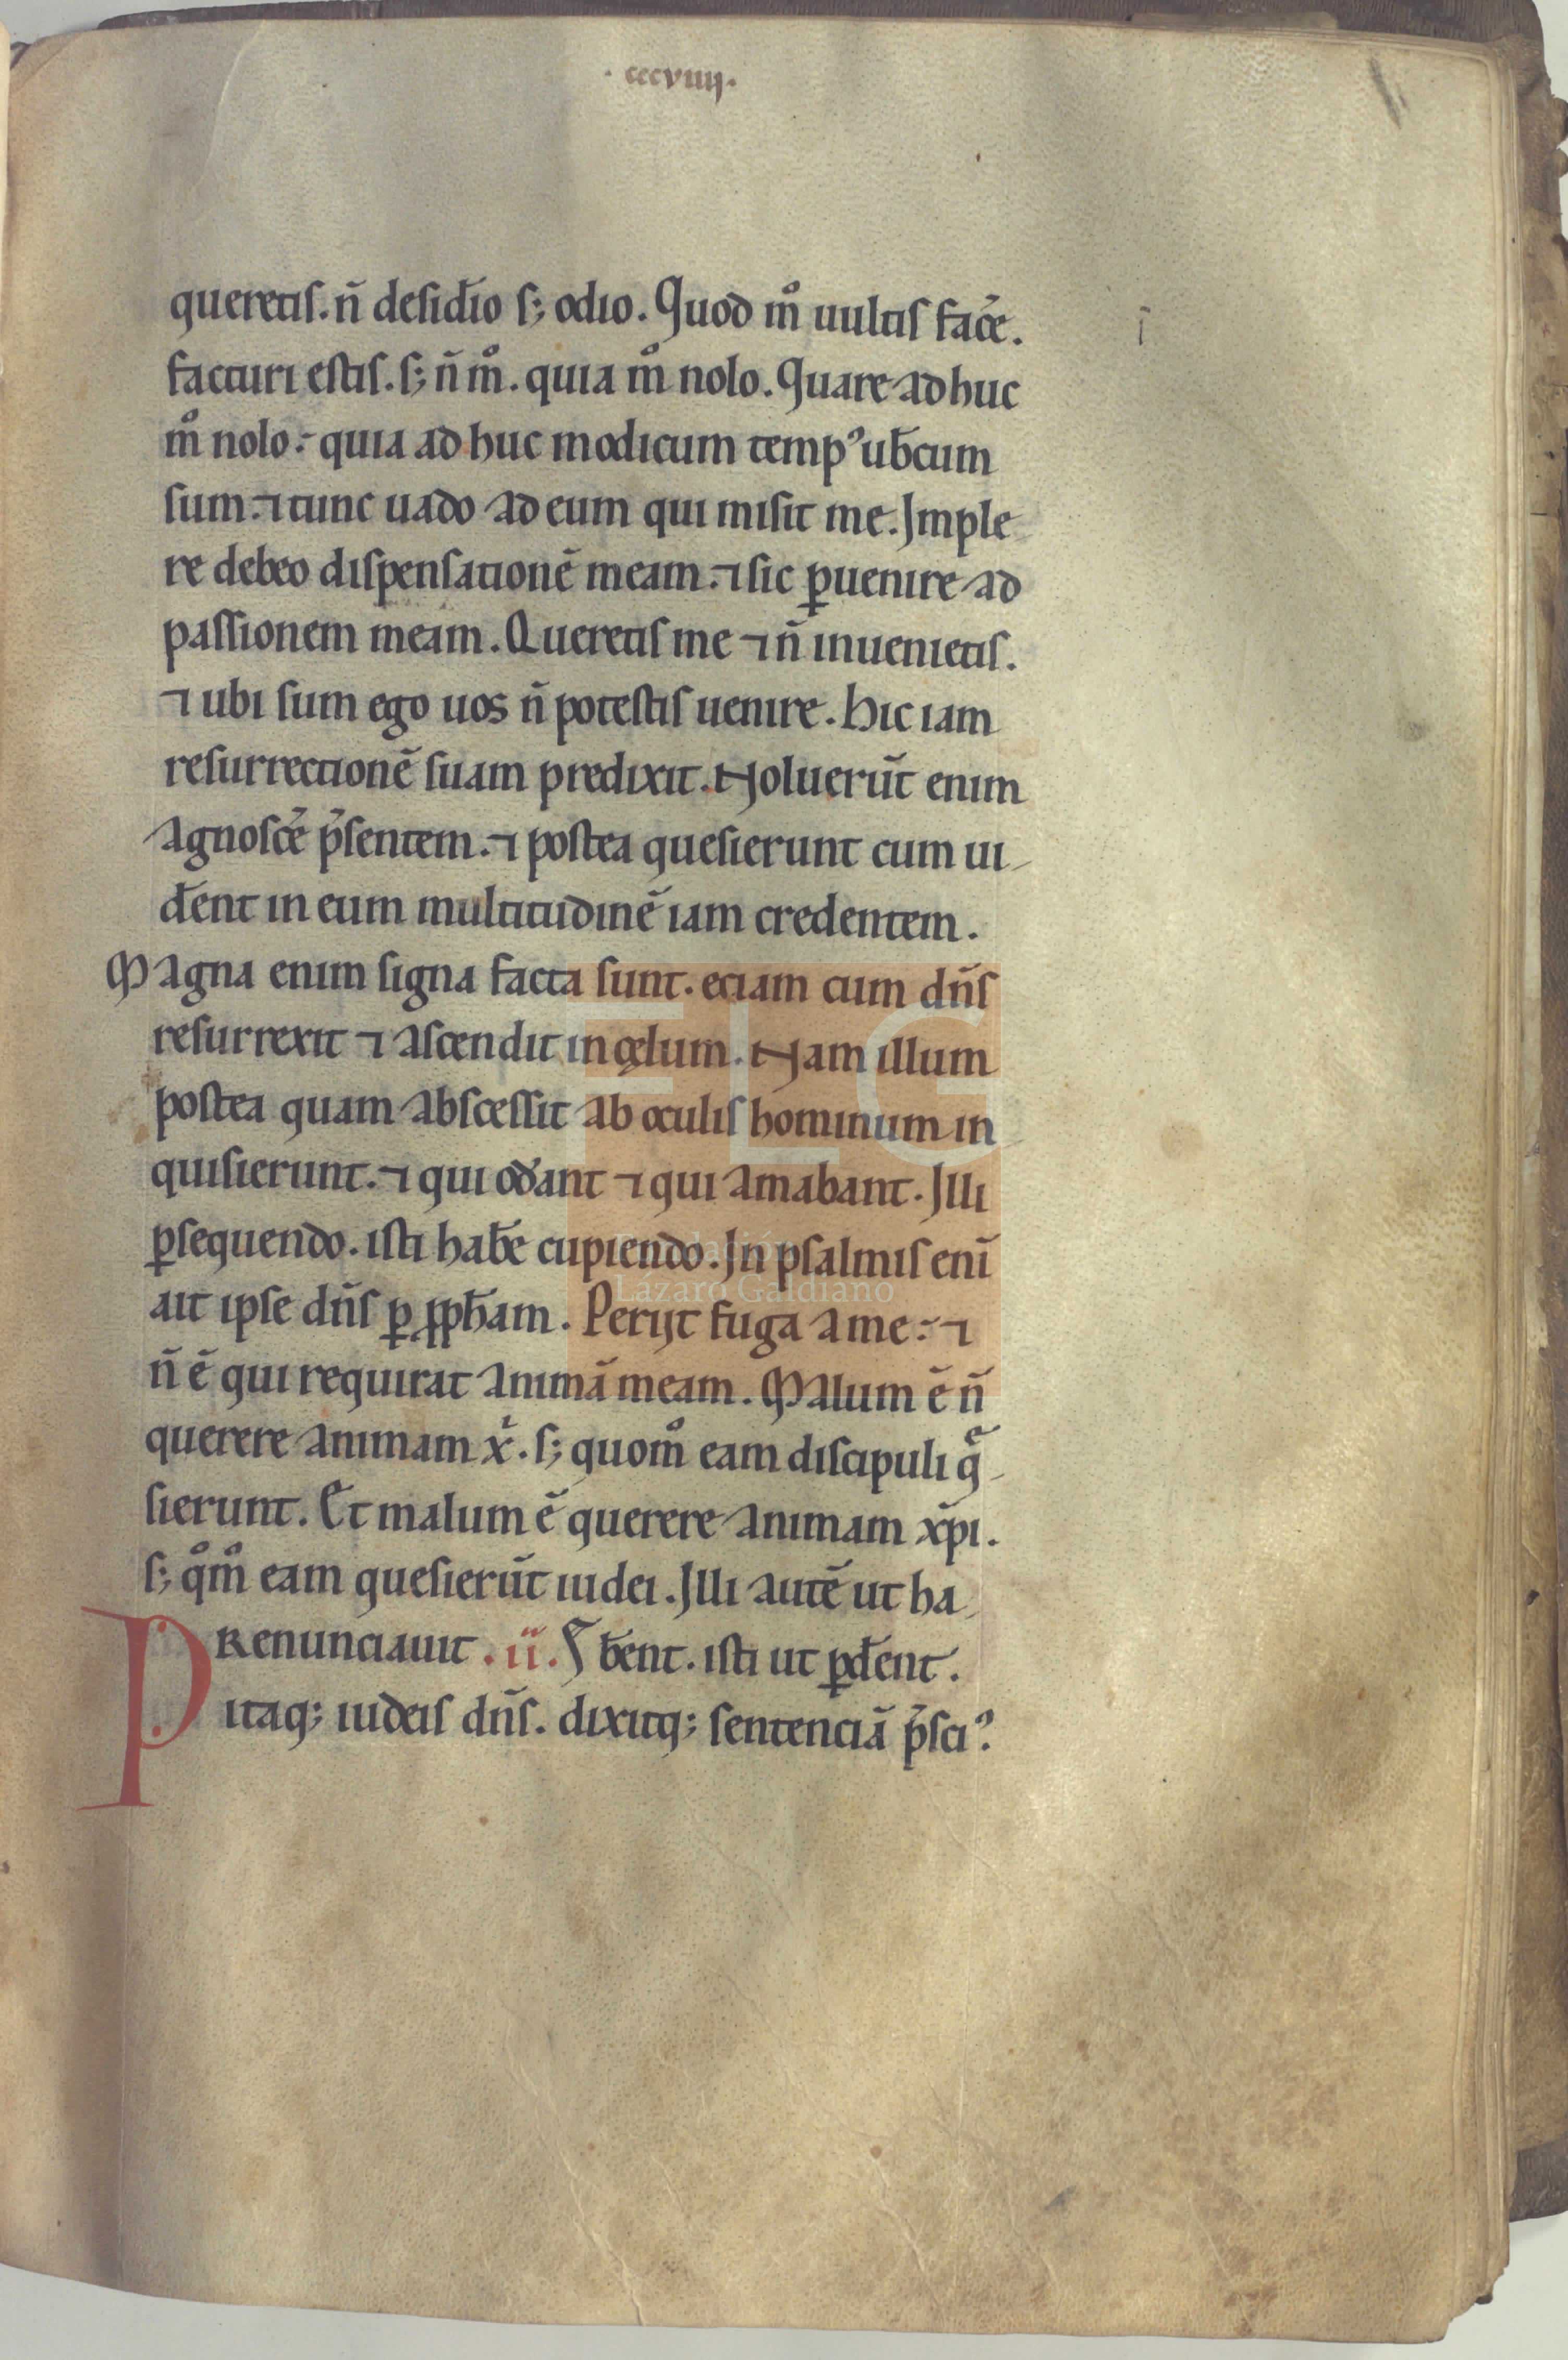 · cccviiij.
queretis. n̄ desid̄io s; odio. Quod m̊ uultis facē̉.
facturi estis. s; n̄ m̊. quia m̊ nolo. Quare adhuc
m̊ nolo:- quia ad huc modicum temp᾽ ub̄cum
sum:⁊ tunc uado ad eum qui misit me. Imple
re debeo dispensationē meam:⁊ sic ꝑuenire ad
passionem meam. Queretis me ⁊ n̄ inuenietis.
⁊ ubi sum ego uos n̄ potestis uenire. Hic iam
resurrectionē suam predixit. Noluerūt enim
agnosc̄e p̄sentem.⁊ postea quesierunt cum ui-
d̄ent in eum multitudinē iam credentem.
Magna enim signa facta sunt. eciam cum dn̄s
resurrexit ⁊ ascendit in cęlum. Nam illum
postea quam abscessit ab oculis hominum in
quisierunt.⁊ qui od̓ant ⁊ qui amabant. Illi
ꝑsequendo. isti hab̄e cupiendo. In psalmis enī
ait ipse dn̄s ꝑ ꝓph̄am. Perijt fuga a me:-⁊
n̄ ē qui requirat animā meam. Malum ē n̄
querere animam xͥ. s; quom̊ eam discipuli qͤ-
sierunt. Et malum ē querere animam xp̄i.
s; q̊m̊ eam quesierūt iudei. Illi autē ut ha
PRenunciauit .ii. b̄ent. isti ut ꝑd̄ent.
itaq; iudeis dn̄s. dixitq; sentenciā p̄sci᾽
FLG
Fundación
Lázaro Galdiano